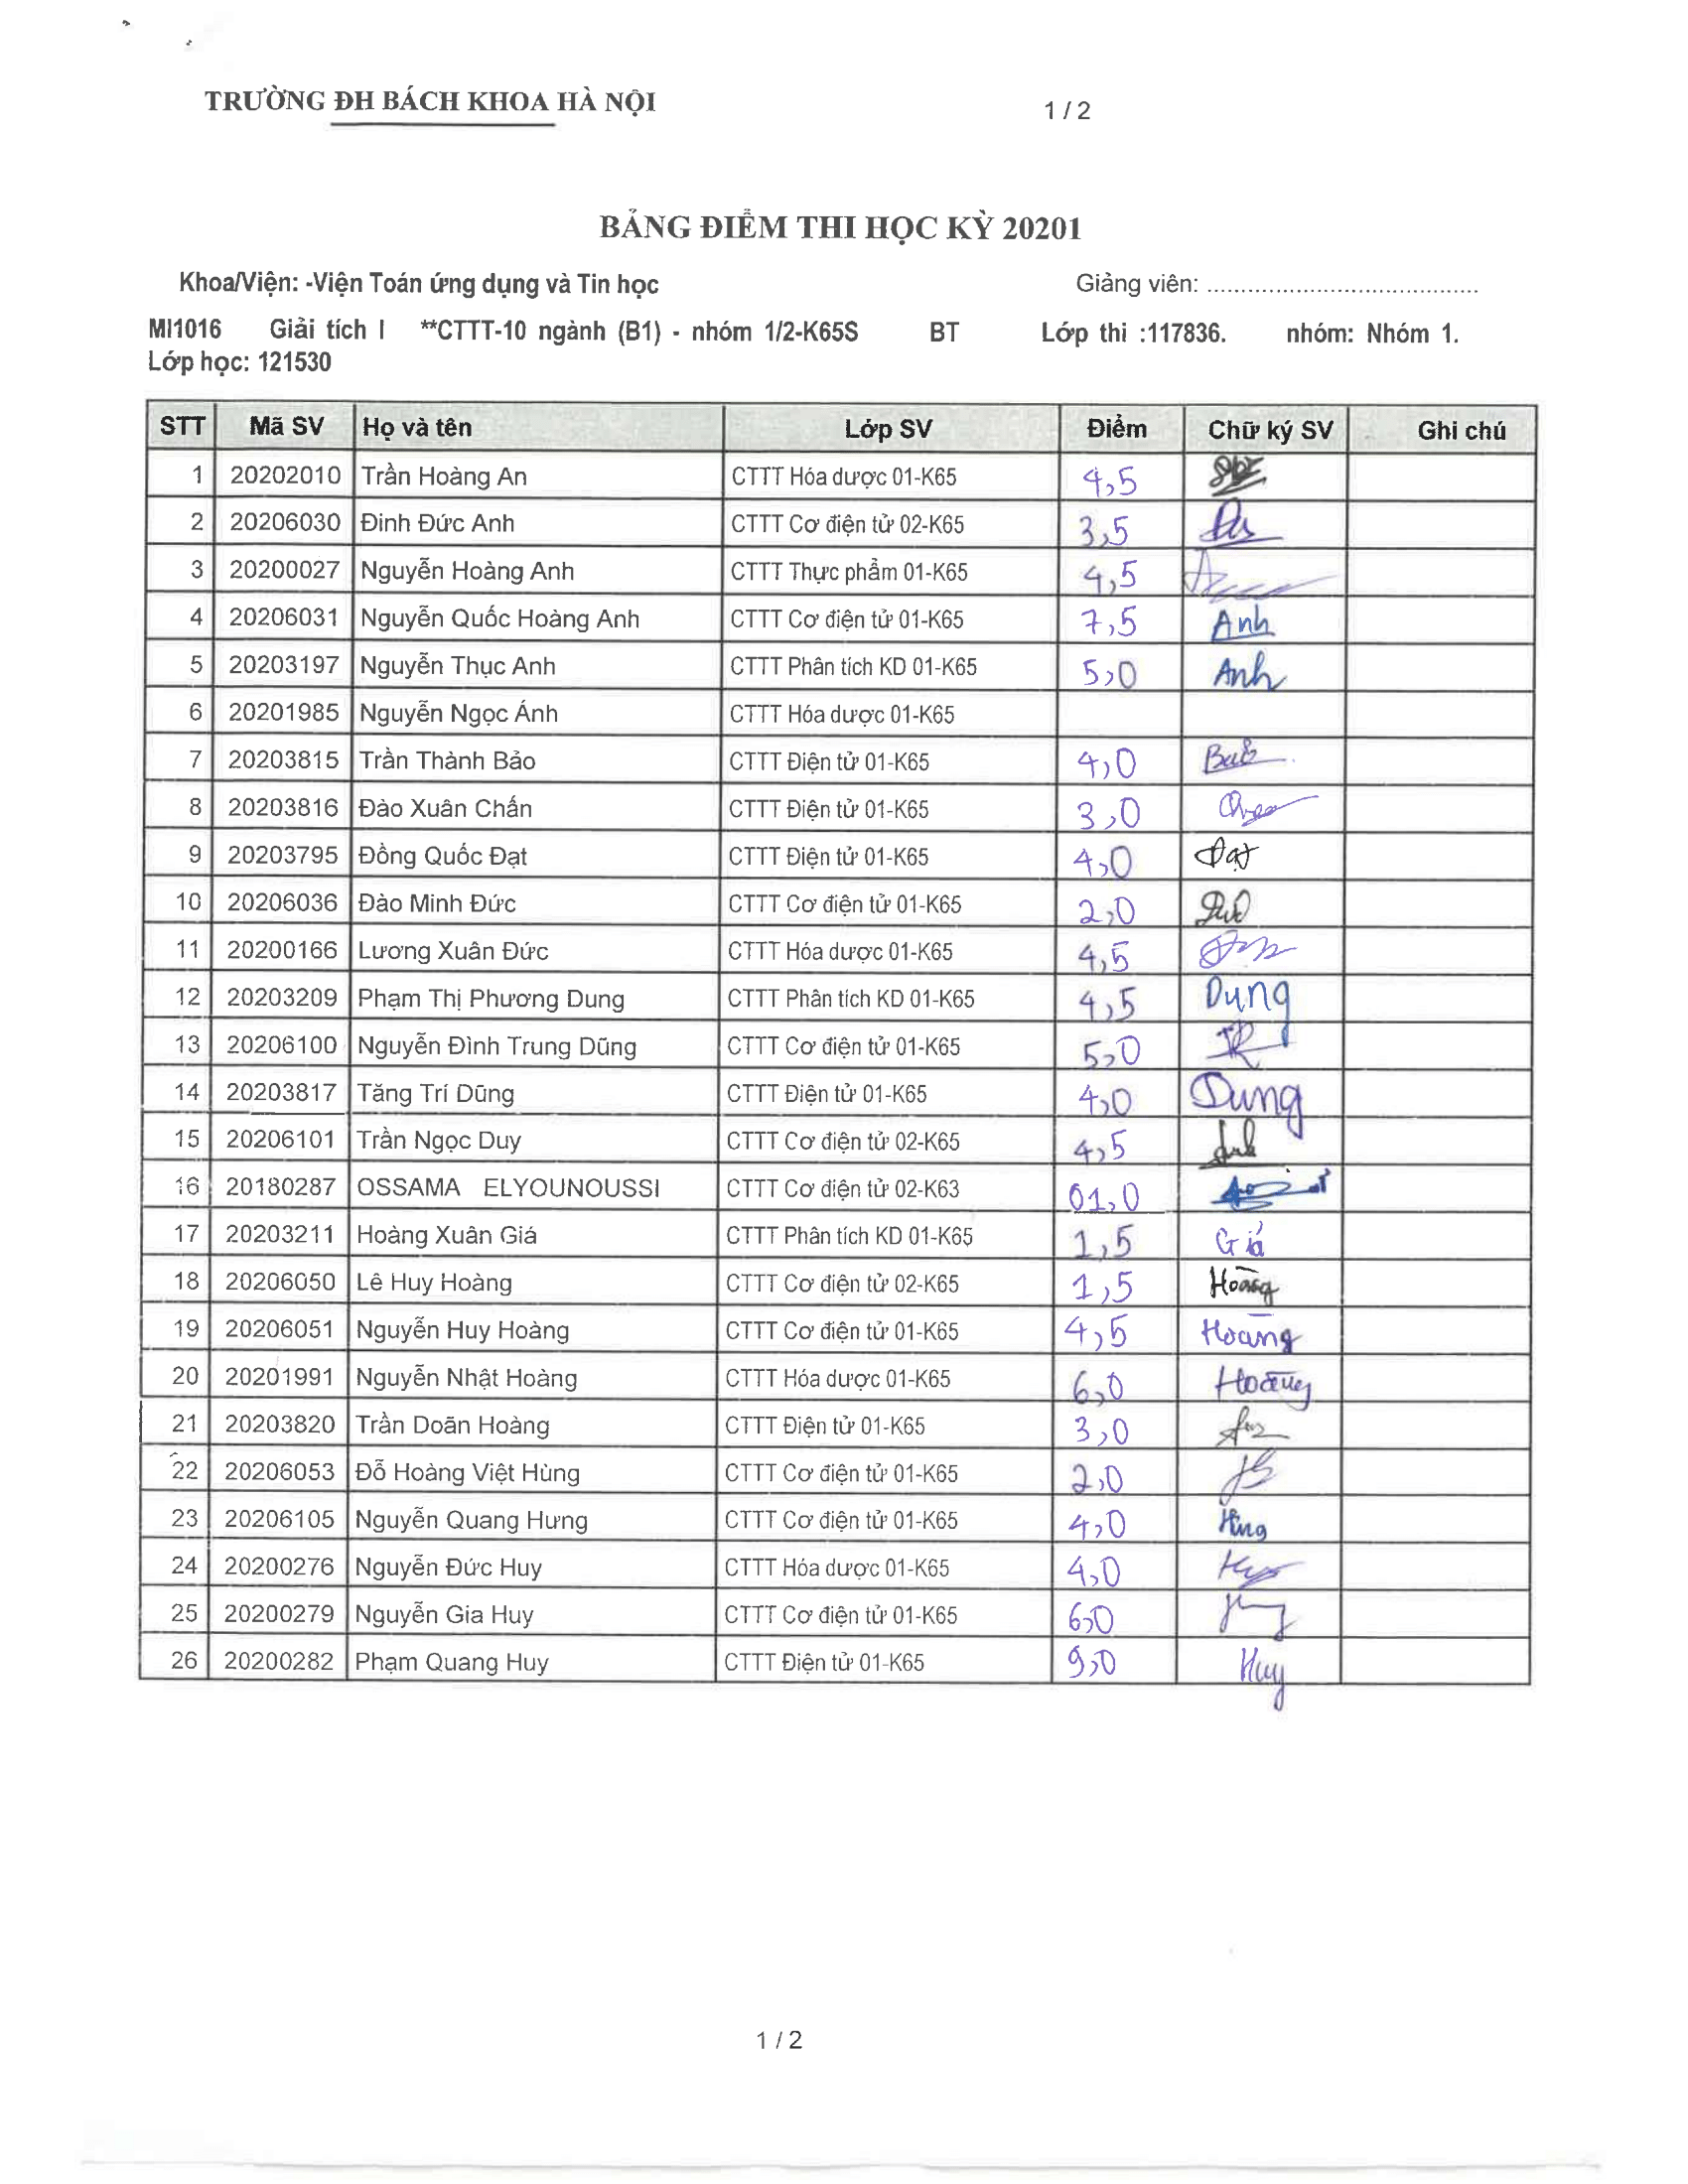 TRƯỜNG ĐH BÁCH KHOA HÀ NỘI
1 / 2
BẢNG ĐIỂM THI HỌC KỲ 20201
Khoa/Viện: -Viện Toán ứng dụng và Tin học Giảng viên: ........................................
MI1016 Giải tích I **CTTT-10 ngành (B1) - nhóm 1/2-K65S BT Lớp thi :117836. nhóm: Nhóm 1.
Lớp học: 121530
STT Mã SV Họ và tên Lớp SV Điểm Chữ ký SV Ghi chú
1 20202010 Trần Hoàng An CTTT Hóa dược 01-K65 4,5
2 20206030 Đinh Đức Anh CTTT Cơ điện tử 02-K65 3,5
3 20200027 Nguyễn Hoàng Anh CTTT Thực phẩm 01-K65 4,5
4 20206031 Nguyễn Quốc Hoàng Anh CTTT Cơ điện tử 01-K65 7,5 Anh
5 20203197 Nguyễn Thục Anh CTTT Phân tích KD 01-K65 5,0 Anh
6 20201985 Nguyễn Ngọc Ánh CTTT Hóa dược 01-K65
7 20203815 Trần Thành Bảo CTTT Điện tử 01-K65 4,0
8 20203816 Đào Xuân Chấn CTTT Điện tử 01-K65 3,0
9 20203795 Đồng Quốc Đạt CTTT Điện tử 01-K65 4,0 Đạt
10 20206036 Đào Minh Đức CTTT Cơ điện tử 01-K65 2,0
11 20200166 Lương Xuân Đức CTTT Hóa dược 01-K65 4,5
12 20203209 Phạm Thị Phương Dung CTTT Phân tích KD 01-K65 4,5 Dung
13 20206100 Nguyễn Đình Trung Dũng CTTT Cơ điện tử 01-K65 5,0
14 20203817 Tăng Trí Dũng CTTT Điện tử 01-K65 4,0 Dung
15 20206101 Trần Ngọc Duy CTTT Cơ điện tử 02-K65 4,5
16 20180287 OSSAMA ELYOUNOUSSI CTTT Cơ điện tử 02-K63 01,0
17 20203211 Hoàng Xuân Giá CTTT Phân tích KD 01-K65 1,5 Giá
18 20206050 Lê Huy Hoàng CTTT Cơ điện tử 02-K65 1,5 Hoàng
19 20206051 Nguyễn Huy Hoàng CTTT Cơ điện tử 01-K65 4,5 Hoàng
20 20201991 Nguyễn Nhật Hoàng CTTT Hóa dược 01-K65 6,0 Hoàng
21 20203820 Trần Doãn Hoàng CTTT Điện tử 01-K65 3,0
22 20206053 Đỗ Hoàng Việt Hùng CTTT Cơ điện tử 01-K65 2,0
23 20206105 Nguyễn Quang Hưng CTTT Cơ điện tử 01-K65 4,0
24 20200276 Nguyễn Đức Huy CTTT Hóa dược 01-K65 4,0
25 20200279 Nguyễn Gia Huy CTTT Cơ điện tử 01-K65 6,0
26 20200282 Phạm Quang Huy CTTT Điện tử 01-K65 9,0 Huy
1 / 2